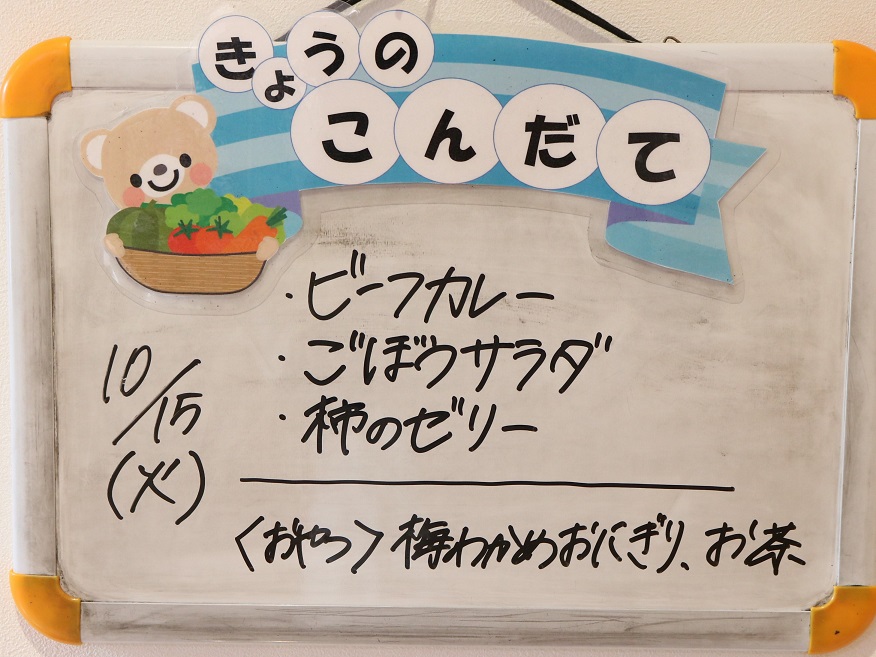 きょうの
こんだて
・ビーフカレー
・ごぼうサラダ
・柿のゼリー
10/15
(火)
〈おやつ〉梅わかめおにぎり、お茶